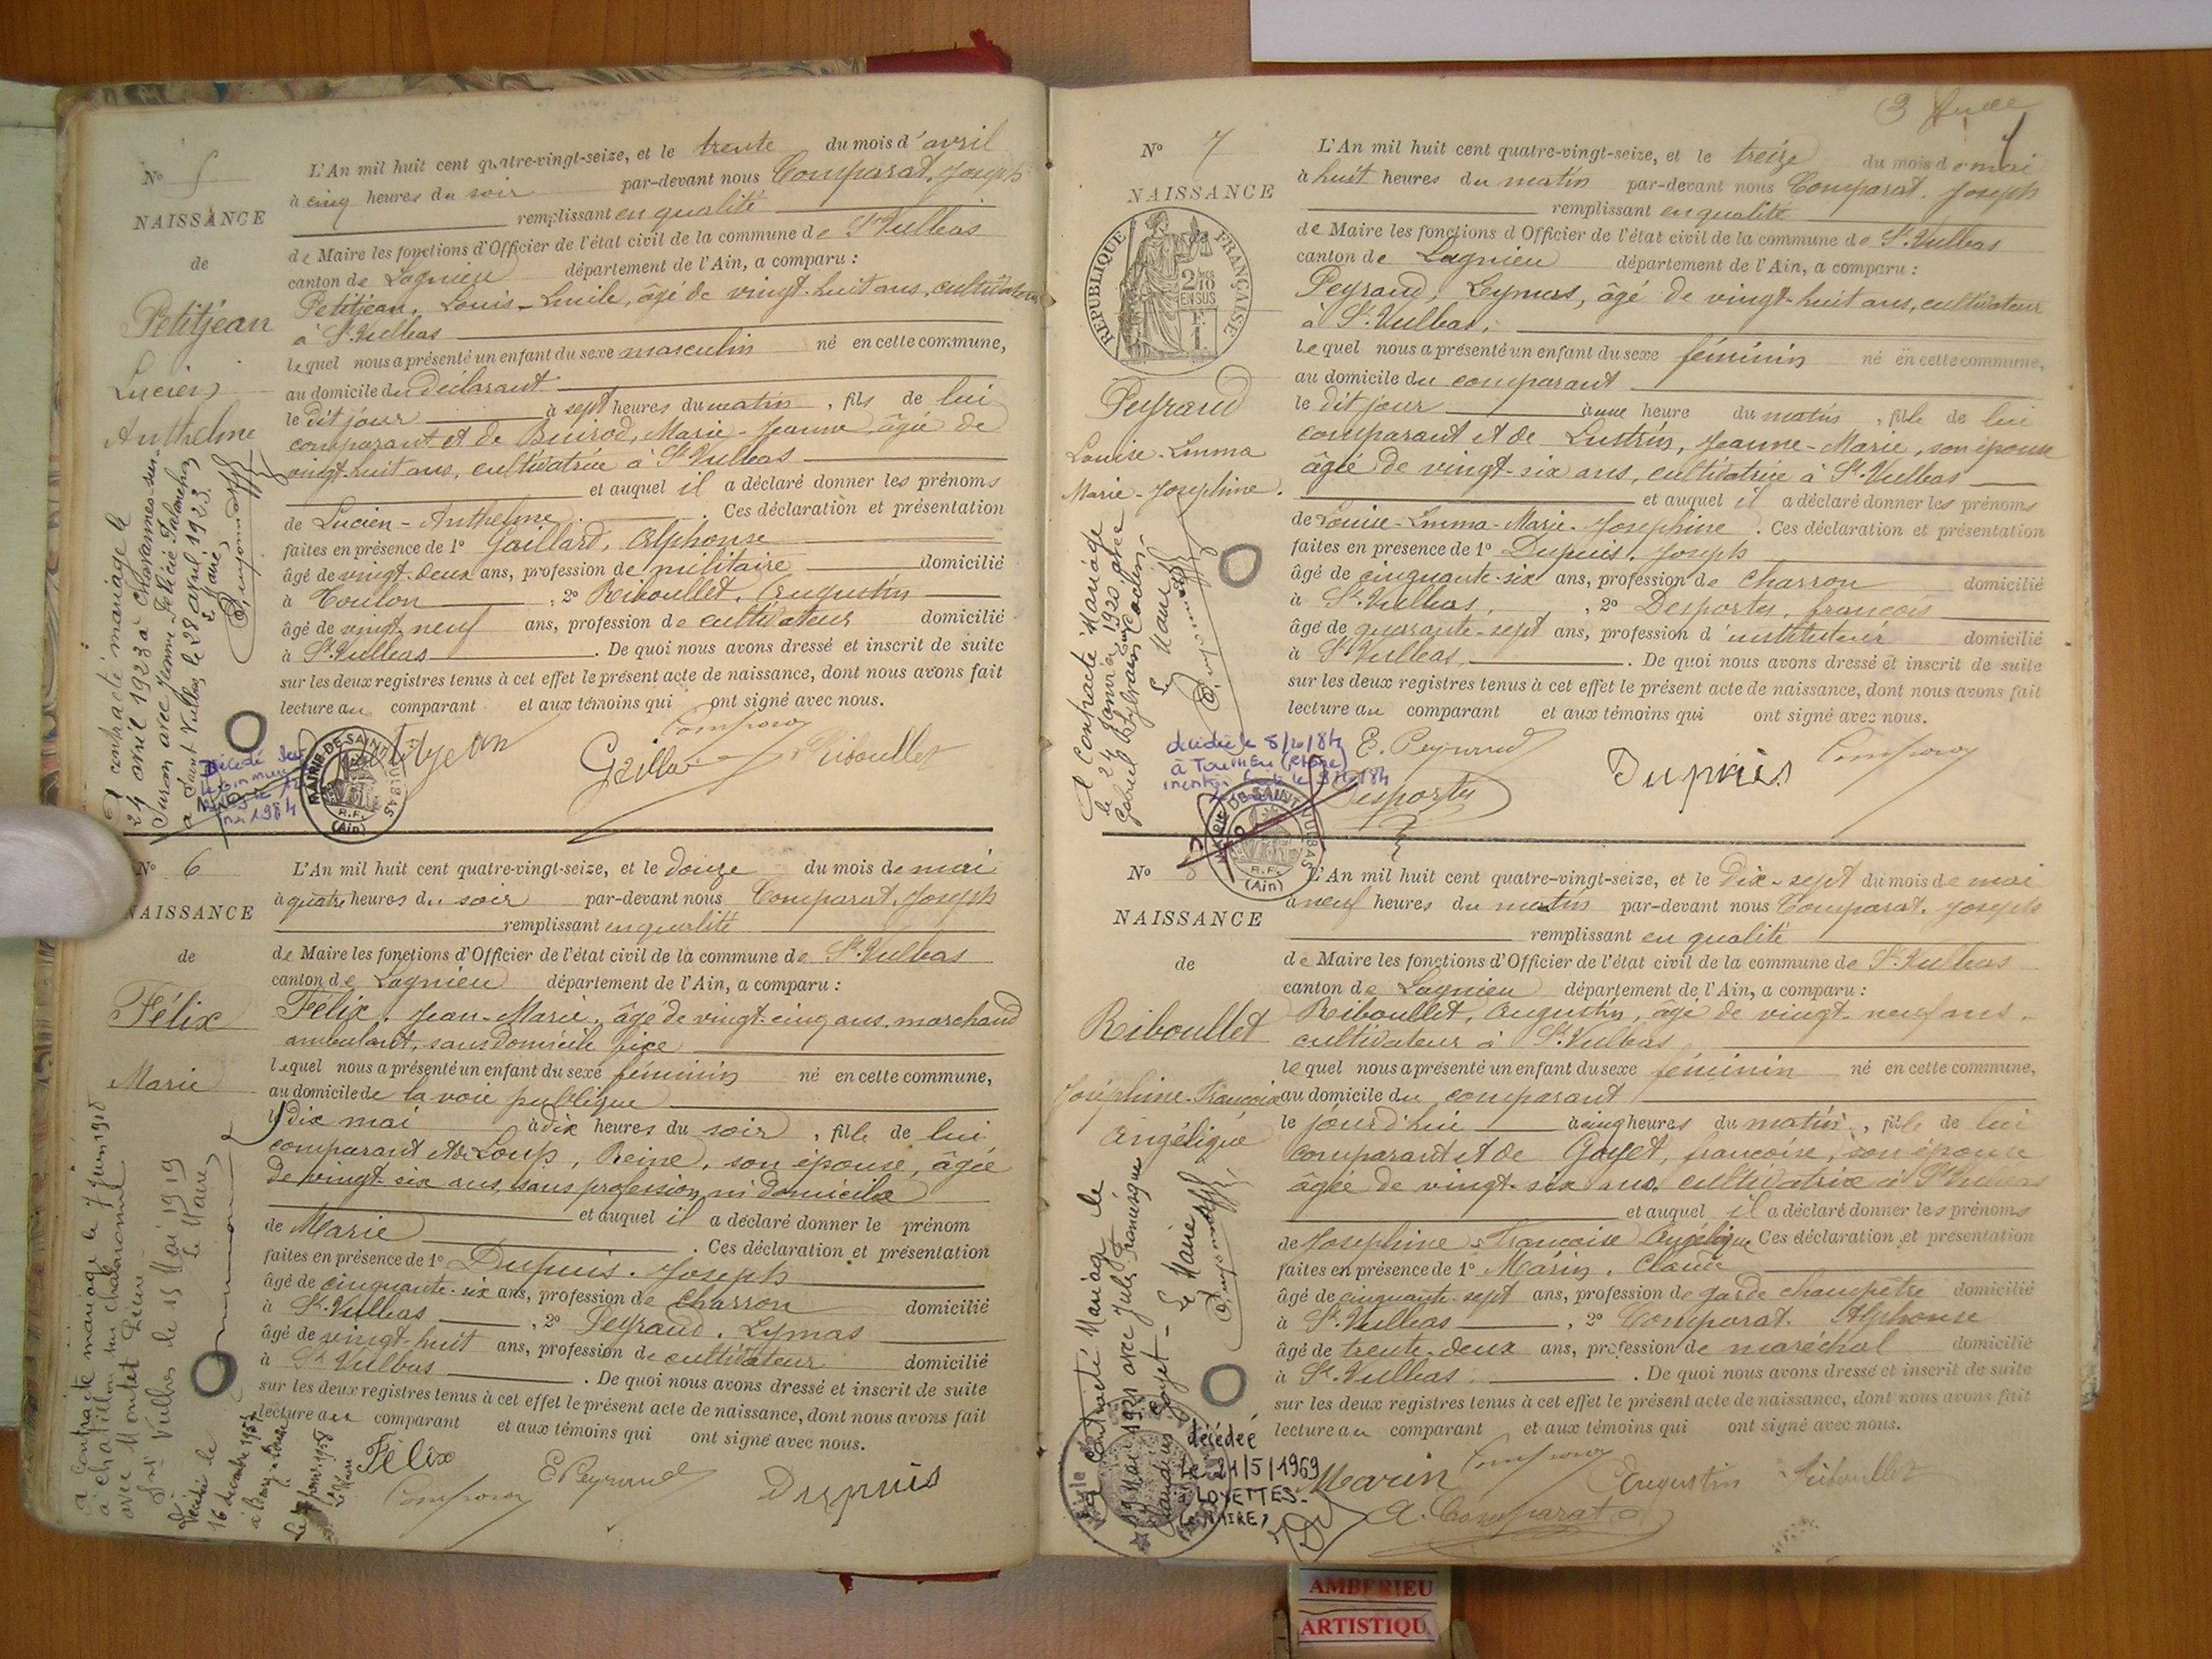 N° 5
NAISSANCE
de
Petitjean
Lucien
Anthelme
L'An mil huit cent quatre-vingt-seize, et le trente du mois d'avril
à cinq heures du soir par-devant nous Comparat, Joseph
remplissant en qualité
de Maire les fonctions d'Officier de l'état civil de la commune de St Vulbas
canton de Lagnieu département de l'Ain, a comparu :
Petitjean, Louis-Emile, âgé de vingt-huit ans, cultivateur
à St Vulbas
lequel nous a présenté un enfant du sexe masculin né en cette commune,
au domicile du déclarant
le dit jour à sept heures du matin, fils de lui
comparant et de Buirod, Marie-Jeanne, âgée de
vingt-huit ans, cultivatrice à St Vulbas
et auquel il a déclaré donner les prénoms
de Lucien-Anthelme. Ces déclaration et présentation
faites en présence de 1° Gaillard, Alphonse
âgé de vingt-deux ans, profession de militaire domicilié
à Toulon, 2° Riboullet, Augustin
âgé de vingt-neuf ans, profession de cultivateur domicilié
à St Vulbas. De quoi nous avons dressé et inscrit de suite
sur les deux registres tenus à cet effet le présent acte de naissance, dont nous avons fait
lecture au comparant et aux témoins qui ont signé avec nous.
Riboullet
A contracté mariage le
24 avril 1923 à Chavannes-sur-
Suran avec Jeanne Félicie
à Saint Vulbas le 28 avril 1923.
Le Maire
MAIRIE DE SAINT VULBAS
R.F.
(Ain)
N° 6
NAISSANCE
de
Félix
Marie
L'An mil huit cent quatre-vingt-seize, et le douze du mois de mai
à quatre heures du soir par-devant nous Comparat, Joseph
remplissant en qualité
de Maire les fonctions d'Officier de l'état civil de la commune de St Vulbas
canton de Lagnieu département de l'Ain, a comparu :
Félix, Jean-Marie, âgé de vingt-cinq ans, marchand
ambulant, sans domicile fixe
lequel nous a présenté un enfant du sexe féminin né en cette commune,
au domicile de la voie publique
le dix mai à dix heures du soir, fille de lui
comparant et de Loup, Reine, son épouse, âgée
de vingt-six ans, sans profession ni domicile
et auquel il a déclaré donner le prénom
de Marie. Ces déclaration et présentation
faites en présence de 1° Dupuis, Joseph
âgé de cinquante-six ans, profession de charron domicilié
à St Vulbas, 2° Peyraud, Lymas
âgé de vingt-huit ans, profession de cultivateur domicilié
à St Vulbas. De quoi nous avons dressé et inscrit de suite
sur les deux registres tenus à cet effet le présent acte de naissance, dont nous avons fait
lecture au comparant et aux témoins qui ont signé avec nous.
Félix
E Peyraud
Dupuis
a contracté mariage le 7 juin 1918
à Chatillon sur Chalaronne
avec Montet
St Vulbas le 15 Mai 1919
Le Maire
Décédée le
16 décembre 1957
N° 7
NAISSANCE
REPUBLIQUE FRANÇAISE
2/10 EN SUS
Peyraud
Louise-Emma
Marie-Joséphine.
L'An mil huit cent quatre-vingt-seize, et le treize du mois de mai
à huit heures du matin par-devant nous Comparat, Joseph
remplissant en qualité
de Maire les fonctions d'Officier de l'état civil de la commune de St Vulbas
canton de Lagnieu département de l'Ain, a comparu :
Peyraud, Lymas, âgé de vingt-huit ans, cultivateur
à St Vulbas,
lequel nous a présenté un enfant du sexe féminin né en cette commune,
au domicile du comparant
le dit jour à une heure du matin, fille de lui
comparant et de Lustrin, Jeanne-Marie, son épouse
âgée de vingt-six ans, cultivatrice à St Vulbas
et auquel il a déclaré donner les prénoms
de Louise-Emma-Marie-Joséphine. Ces déclaration et présentation
faites en présence de 1° Dupuis, Joseph
âgé de cinquante-six ans, profession de charron domicilié
à St Vulbas, 2° Desportes, françois
âgé de quarante-sept ans, profession d'instituteur domicilié
à St Vulbas. De quoi nous avons dressé et inscrit de suite
sur les deux registres tenus à cet effet le présent acte de naissance, dont nous avons fait
lecture au comparant et aux témoins qui ont signé avec nous.
E. Peyraud
Dupuis
Desportes
A Contracté Mariage
le 24 Janvier 1920 avec
Le Maire
décédée le 5/10/84
MAIRIE DE SAINT VULBAS
R.F.
(Ain)
N° 8
NAISSANCE
de
Riboullet
Joséphine-Françoise
Angélique
L'An mil huit cent quatre-vingt-seize, et le Dix-sept du mois de mai
à neuf heures du matin par-devant nous Comparat, Joseph
remplissant en qualité
de Maire les fonctions d'Officier de l'état civil de la commune de St Vulbas
canton de Lagnieu département de l'Ain, a comparu :
Riboullet, Augustin, âgé de vingt-neuf ans,
cultivateur à St Vulbas
lequel nous a présenté un enfant du sexe féminin né en cette commune,
au domicile du comparant
le jourd'hui à cinq heures du matin, fille de lui
comparant et de Goyet, françoise, son épouse
âgée de vingt-six ans, cultivatrice à St Vulbas
et auquel il a déclaré donner les prénoms
de Joséphine Françoise Angélique Ces déclaration et présentation
faites en présence de 1° Marin, Claude
âgé de cinquante-sept ans, profession de garde champêtre domicilié
à St Vulbas, 2° Comparat, Alphonse
âgé de trente-deux ans, profession de maréchal domicilié
à St Vulbas. De quoi nous avons dressé et inscrit de suite
sur les deux registres tenus à cet effet le présent acte de naissance, dont nous avons fait
lecture au comparant et aux témoins qui ont signé avec nous.
Marin
Augustin Riboullet
A. Comparat
A Contracté Mariage le
1921 avec Jules Françisque
Claudius Goyet - Le Maire
décédée
Le 21/5/1969
à LOYETTES-
Le MAIRE,
AMBERIEU
ARTISTIQU